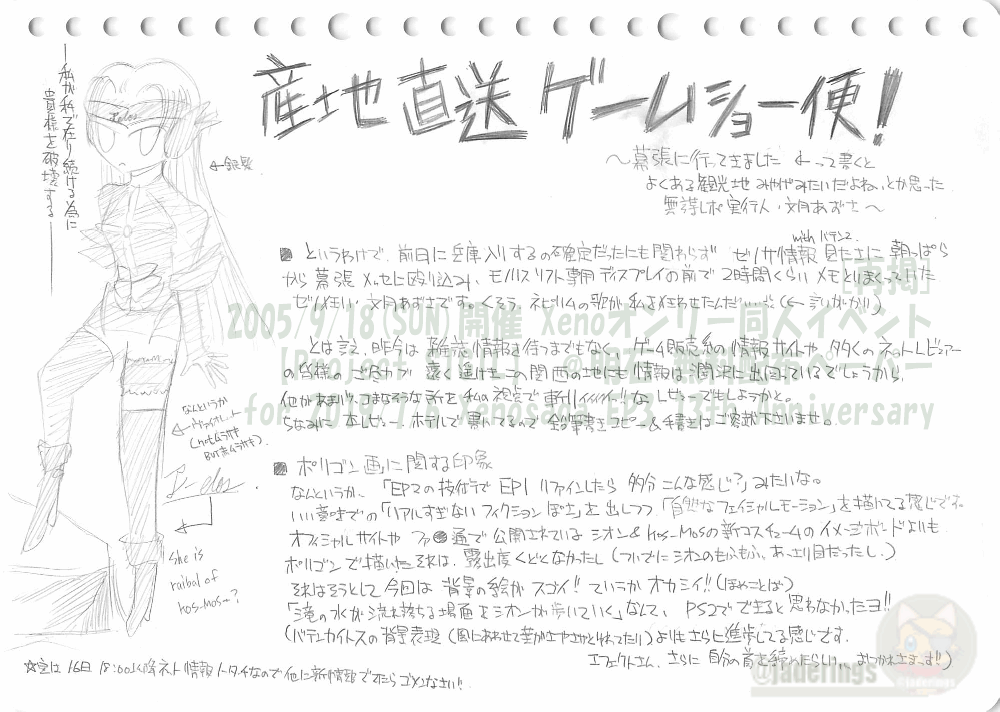 産地直送ゲームショー便!
〜幕張に行ってきました ←って書くと
よくある観光地みやげみたいだよね、とか思った
無謀レポ実行人・文月あずさ〜
私が私で在り続ける為に
貴様を破壊する
←銀髪
with バテン2.
■ というわけで、前日に兵庫入りするの確定だったにも関わらず ゼノサ情報見たさに朝っぱら
から幕張メッセに殴り込み、モノリスソフト専用ディスプレイの前で2時間くらいメモとりまくっていた
ゼノメモリい 文月あずさです。くそう、ネピリムの歌が私を狂わせたんだ……!!(←言いがかり)
[再掲]
2005/9/18(SUN)開催 Xenoオンリー同人イベント
for 2019.7.6 Xenosaga EP3 13th Anniversary
とは言え、昨今は 雑誌情報を待つまでもなく、ゲーム販売系の情報サイトや多くのネットレビュアー
の皆様のご尽力で 遠く遥けきこの関西の地にも情報は潤沢に出回っているでしょうから、
他があまりつっこまなそうな所を私的視点で斬りィィィィ!!なレビューでもしようかと。
ちなみに本レビュー、ホテルで書いてるので鉛筆書きコピー&手書きはご容赦下さいませ。
なんというか
ヴァイオレット
(notムラサキ
BUT赤ムラサキ)
■ ポリゴン画に関する印象
なんというか、「EP2の技術でEP1リファインしたら多分こんな感じ?」みたいな。
いい意味での「リアルすぎないフィクションぽさ」を出しつつ「自然なフェイシャルモーション」を描けてる感じでネ。
オフィシャルサイトやファ●通で公開されているシオン&KOS-MOSの新コスチュームのイメージボードよりも
ポリゴンで描いたそれは、露出度くどくなかったし(ついでにシオンのもふもふ、あっさり目だったし.)
それはそうとして今回は 背景の絵がスゴイ!! ていうかオカシイ!!(ほめことば)
「滝の水が流れ落ちる場面をシオンが歩いていく」なんて、PS2でできると思わなかったヨ!!
(バテンカイトスの背景表現(風にあわせて葉がさやさやとゆれてたり)よりもさらに進歩してる感じです.
エフェクトさん、さらに自分の首を絞めたらしい、おつかれさまーっす!!)
She is
raibal of
kos-mos…?
☆実は16日 18:00以降ネット情報トタチなので他に新情報でてたらゴメンなさい!!
@jaderings